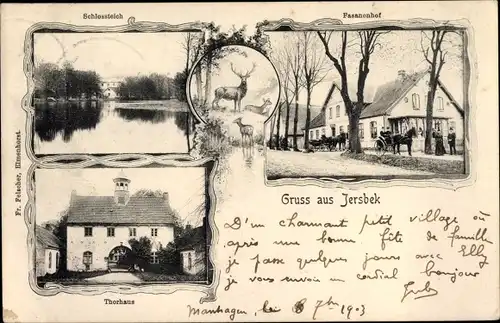 Schlossteich
Fasanenhof
Fr. Felscher, Elmenhorst.
Gruss aus Jersbek
D'un charmant petit village où
après une bonne fête de famille
je passe quelques jours avec Elly
je vous envoie un cordial bonjour
Thorhaus
Manhagen, le 8 7bre 1903